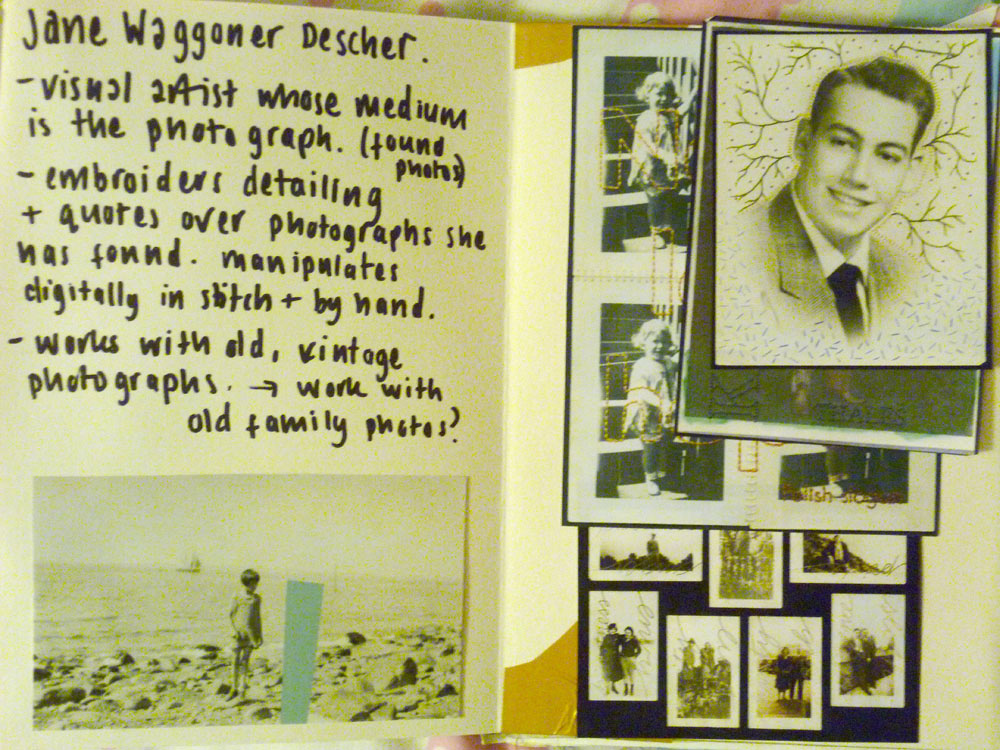 Jane Waggoner Descher.
- visual artist whose medium
is the photograph. (found
photos)
- embroiders detailing
+ quotes over photographs she
has found. manipulates
digitally in stitch + by hand.
- works with old, vintage
photographs. → work with
old family photos?